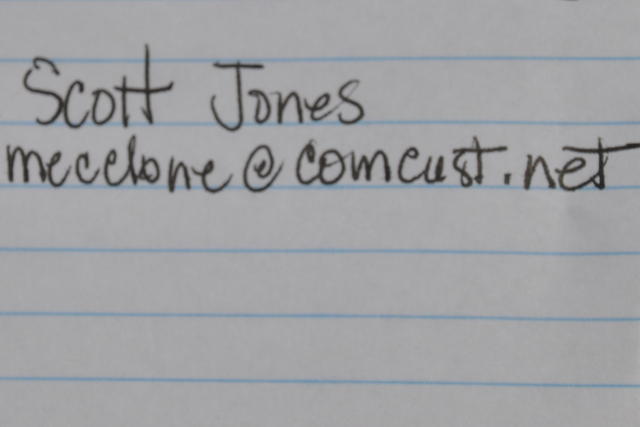 Scott Jones
mecclone@comcust.net